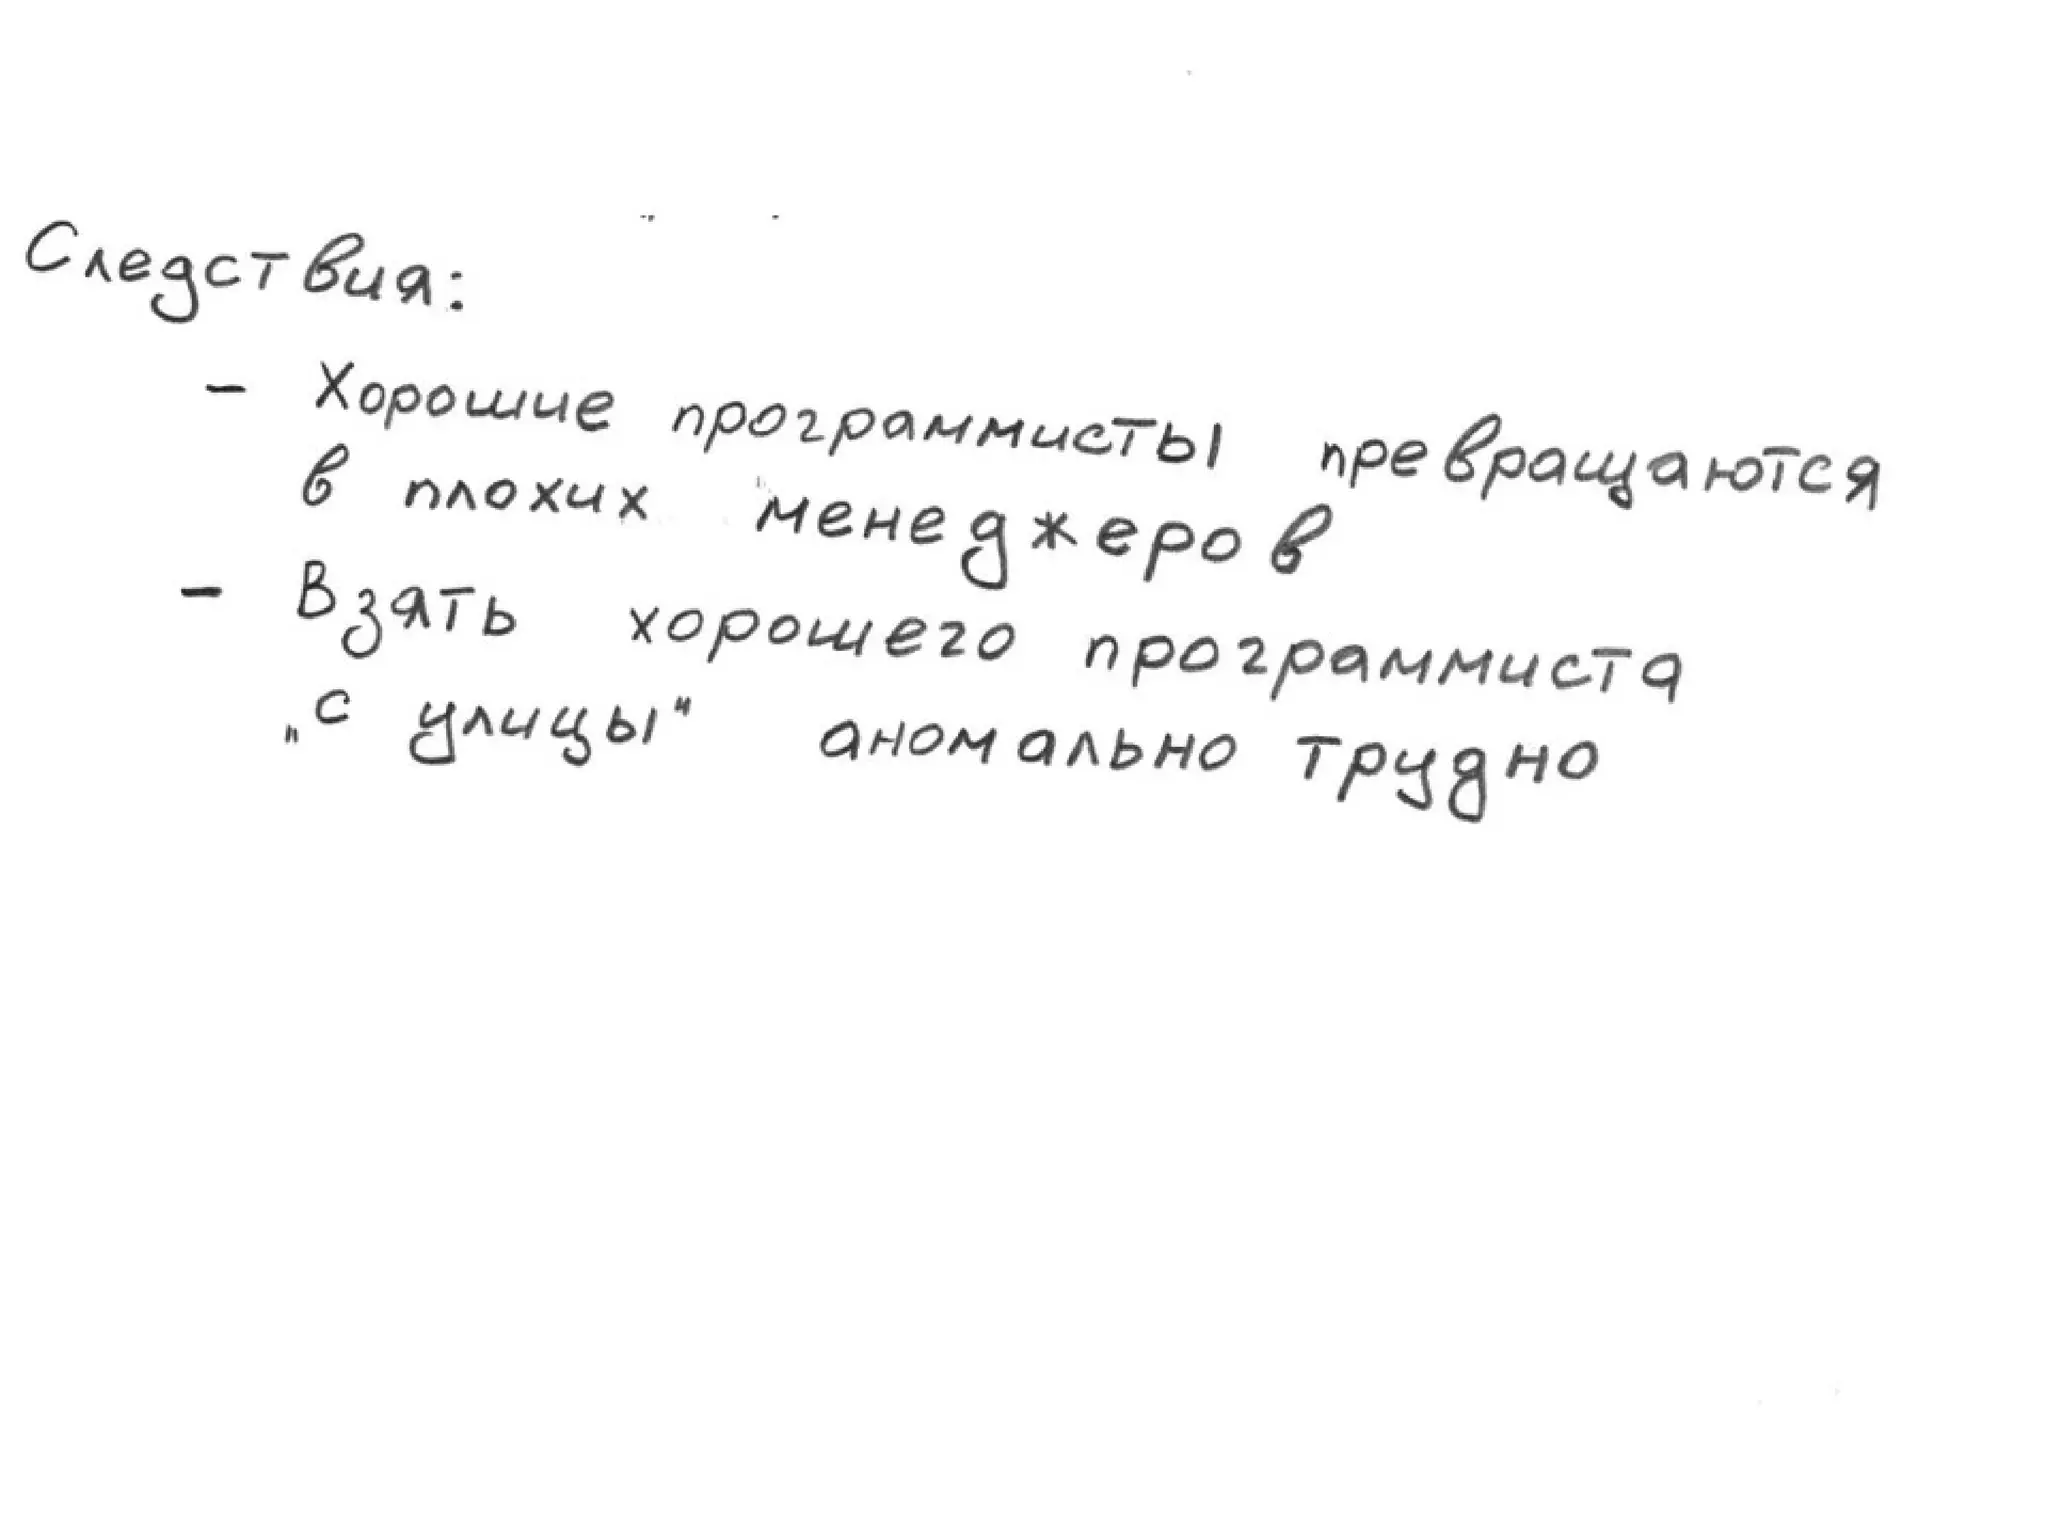 Следствия:
- Хорошие программисты превращаются
в плохих менеджеров
- Взять хорошего программиста
„с улицы" аномально трудно